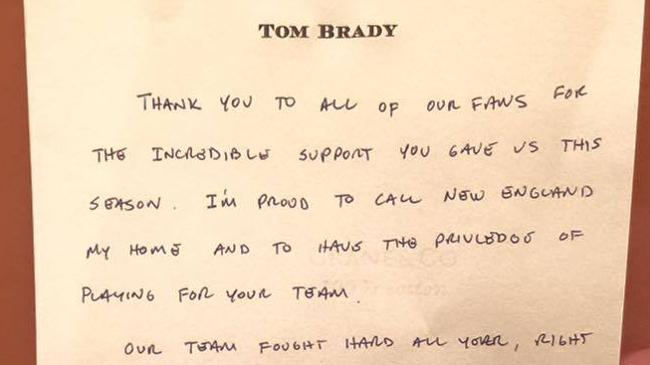 TOM BRADY
THANK YOU TO ALL OF OUR FANS FOR
THE INCREDIBLE SUPPORT YOU GAVE US THIS
SEASON. I'M PROUD TO CALL NEW ENGLAND
MY HOME AND TO HAVE THE PRIVLEDGE OF
PLAYING FOR YOUR TEAM.
OUR TEAM FOUGHT HARD ALL YEAR, RIGHT